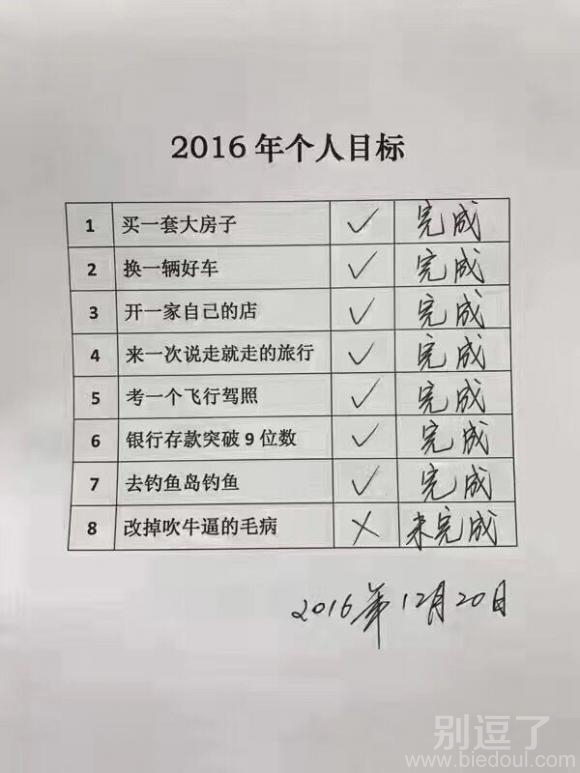 2016年个人目标
1 买一套大房子 ✓ 完成
2 换一辆好车 ✓ 完成
3 开一家自己的店 ✓ 完成
4 来一次说走就走的旅行 ✓ 完成
5 考一个飞行驾照 ✓ 完成
6 银行存款突破9位数 ✓ 完成
7 去钓鱼岛钓鱼 ✓ 完成
8 改掉吹牛逼的毛病 × 未完成
2016年12月20日
别逗了
www.biedoul.com